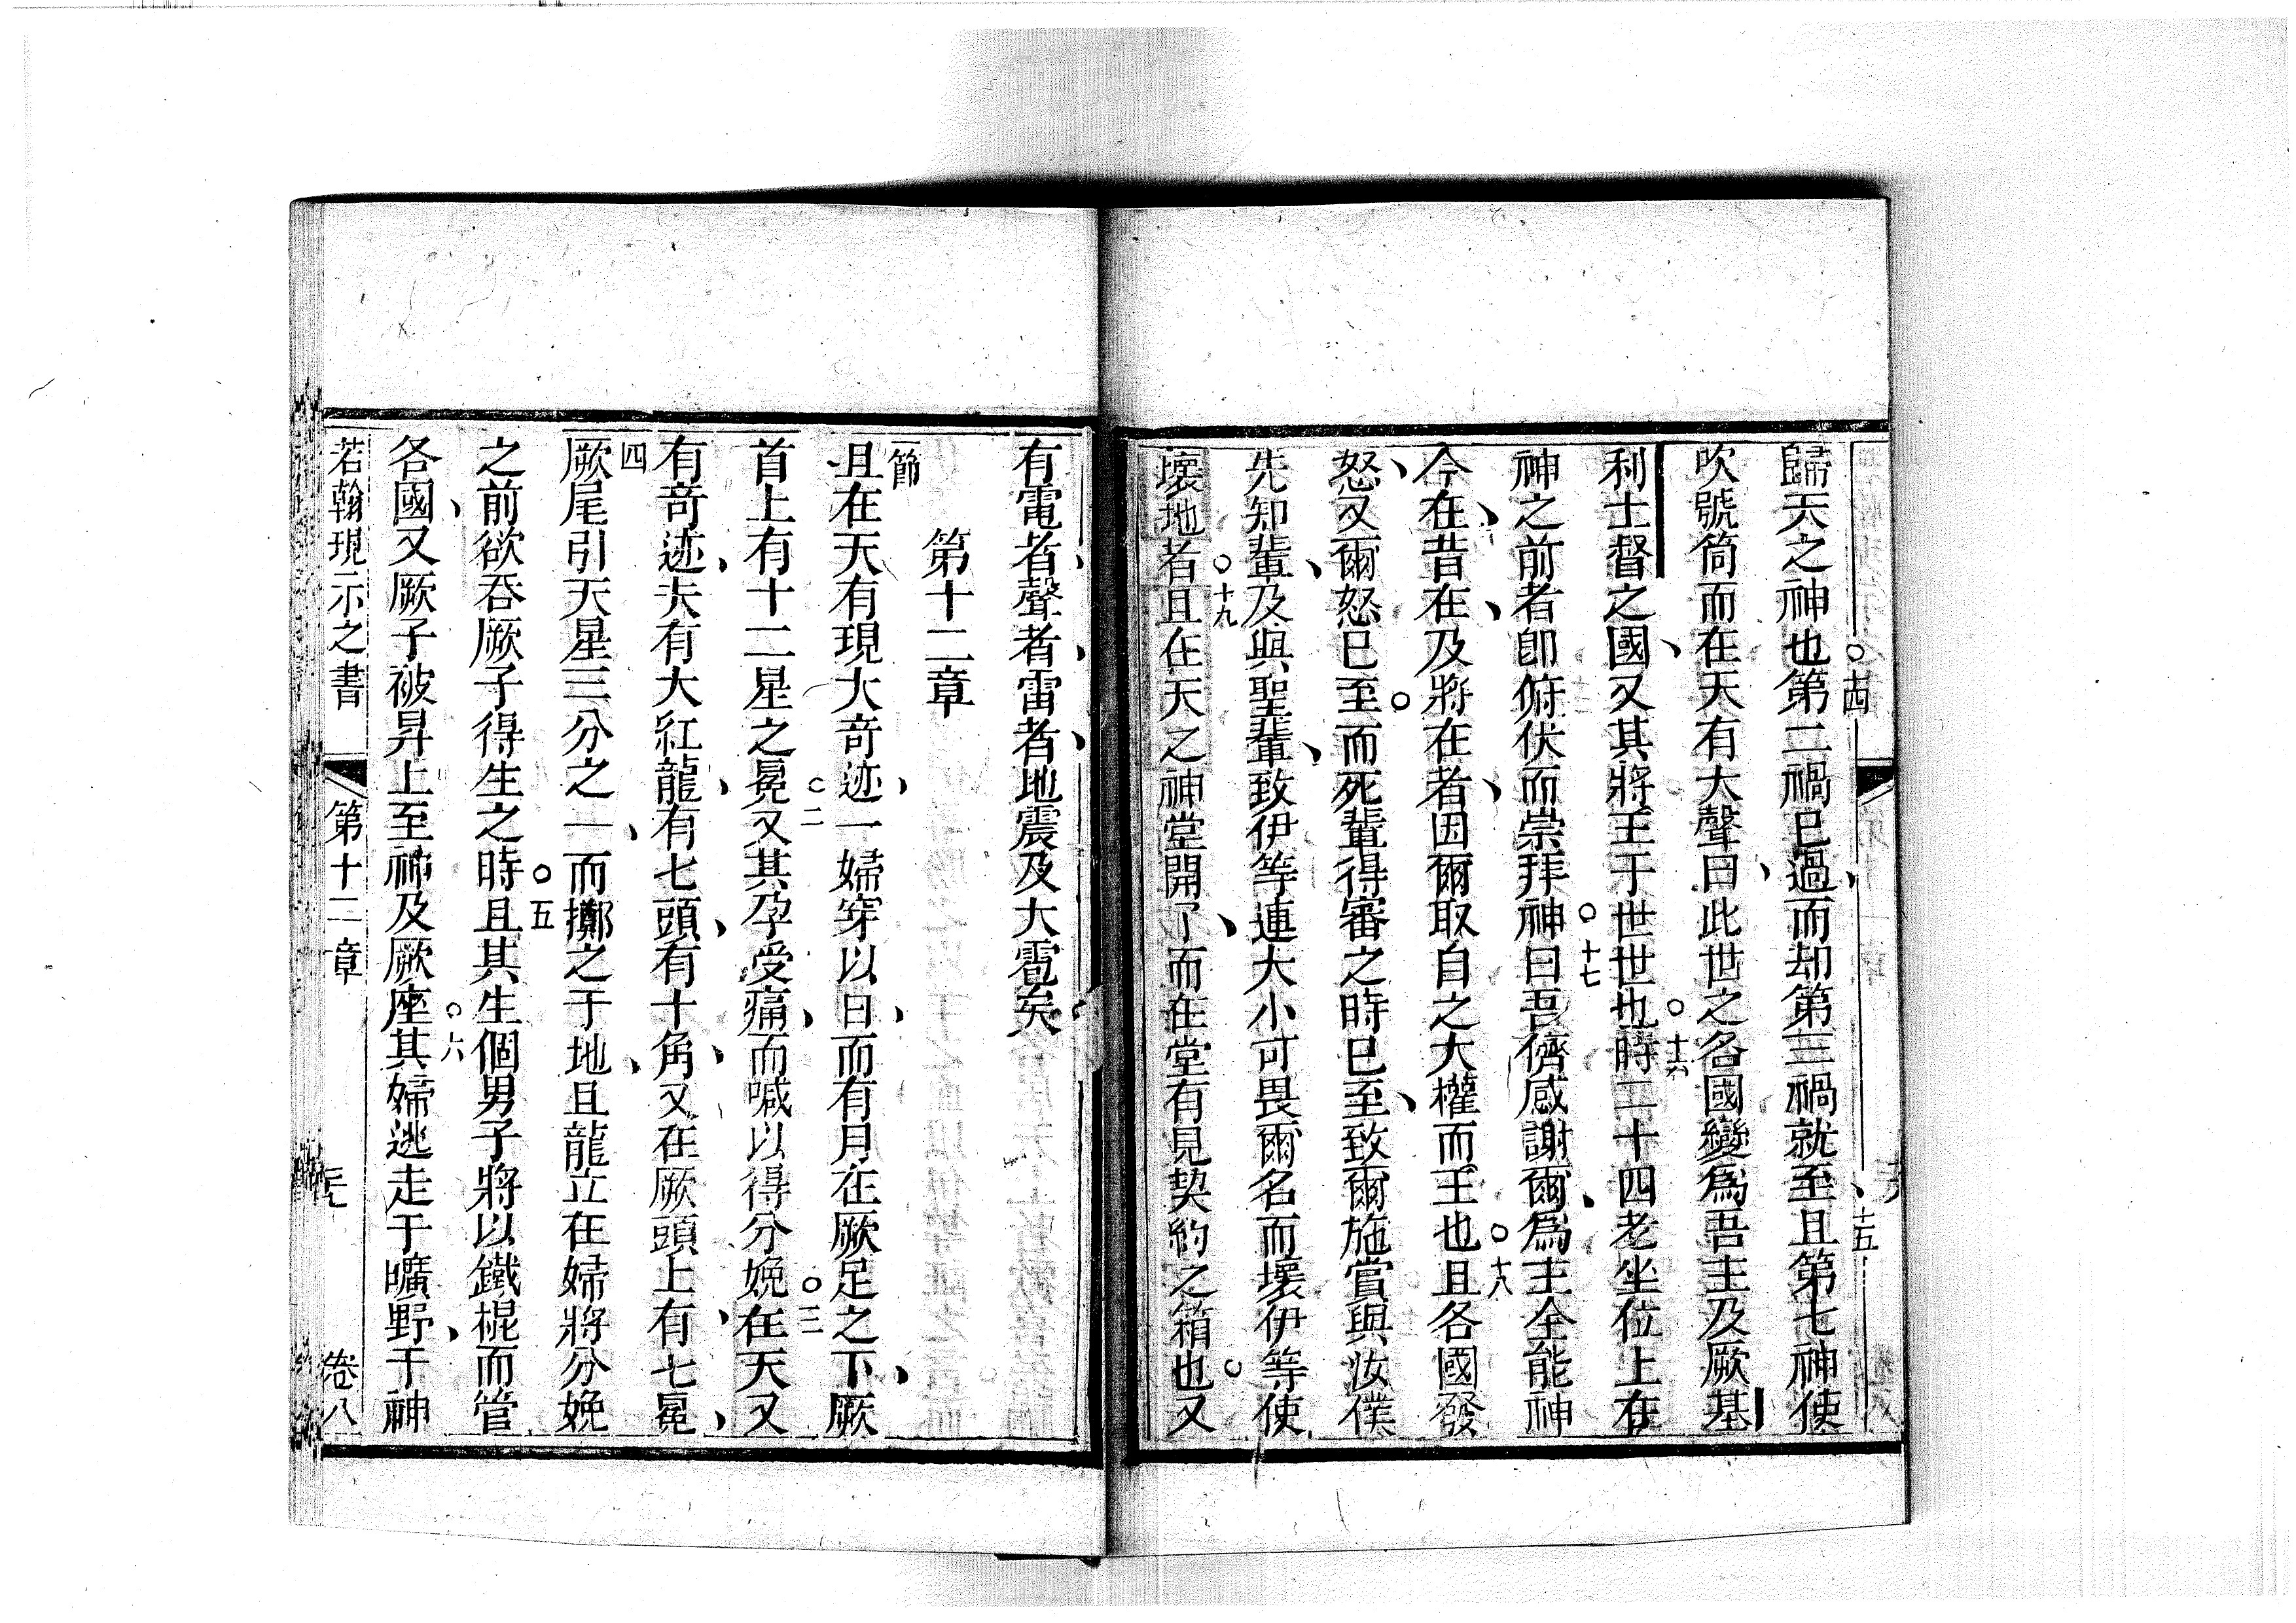 歸天之神也○十四第二禍已過、而却第三禍就至、十五且第七神使
吹號筒而在天有大聲曰、此世之各國變爲吾主及厥基
利士督之國、又其將王于世世也○十六時二十四老坐位上在
神之前者卽俯伏而崇拜神○十七曰吾儕感謝爾、爲主全能神
今在、昔在、及將在者、因爾取自之大權而王也○十八且各國發
怒、又爾怒已至○而死輩得審之時已至、致爾施賞與汝僕
先知輩、及與聖輩、致伊等連大小可畏爾名而壞伊等使
壞地者○十九且在天之神堂開了、而在堂有見契約之箱也○又
有電者、聲者、雷者、地震及大雹矣
第十二章
一節且在天有現大奇迹、一婦穿以日、而有月在厥足之下、厥
首上有十二星之冕○二又其孕受痛、而喊以得分娩○三在天又
有奇迹、夫有大紅龍、有七頭、有十角、又在厥頭上、有七冕、
四厥尾引天星三分之一、而擲之于地、且龍立在婦將分娩
之前欲吞厥子得生之時○五且其生個男子將以鐵棍而管
各國、又厥子被昇上至神及厥座○六其婦逃走于曠野、于神
若翰現示之書 第十二章 卷八